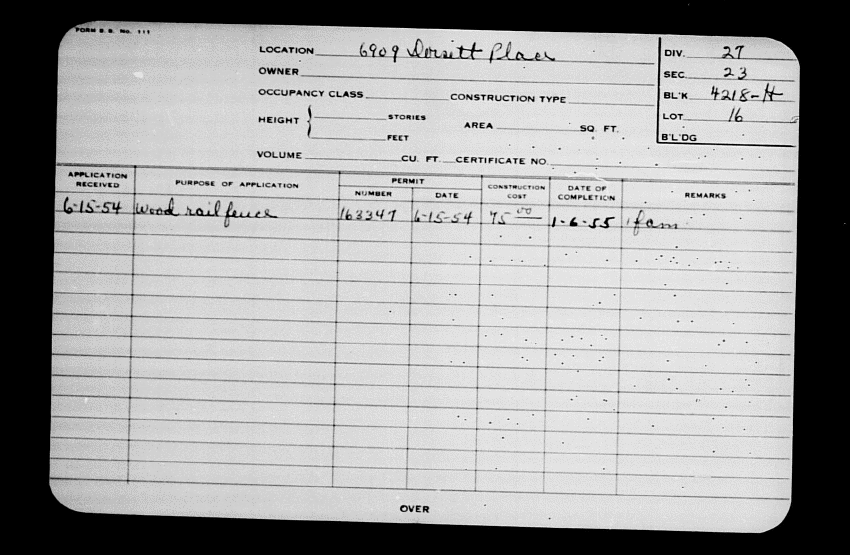 FORM B.B. No. 111
LOCATION 6909 Dorsett Place
DIV. 27
OWNER
SEC. 23
OCCUPANCY CLASS CONSTRUCTION TYPE
BL'K 4218-H
HEIGHT { STORIES
FEET
AREA SQ. FT.
LOT 16
B'L'DG
VOLUME CU. FT. CERTIFICATE NO.
APPLICATION RECEIVED PURPOSE OF APPLICATION PERMIT NUMBER DATE CONSTRUCTION COST DATE OF COMPLETION REMARKS
6-15-54 Wood rail fence 163347 6-15-54 75 00 1-6-55 1 fam
OVER